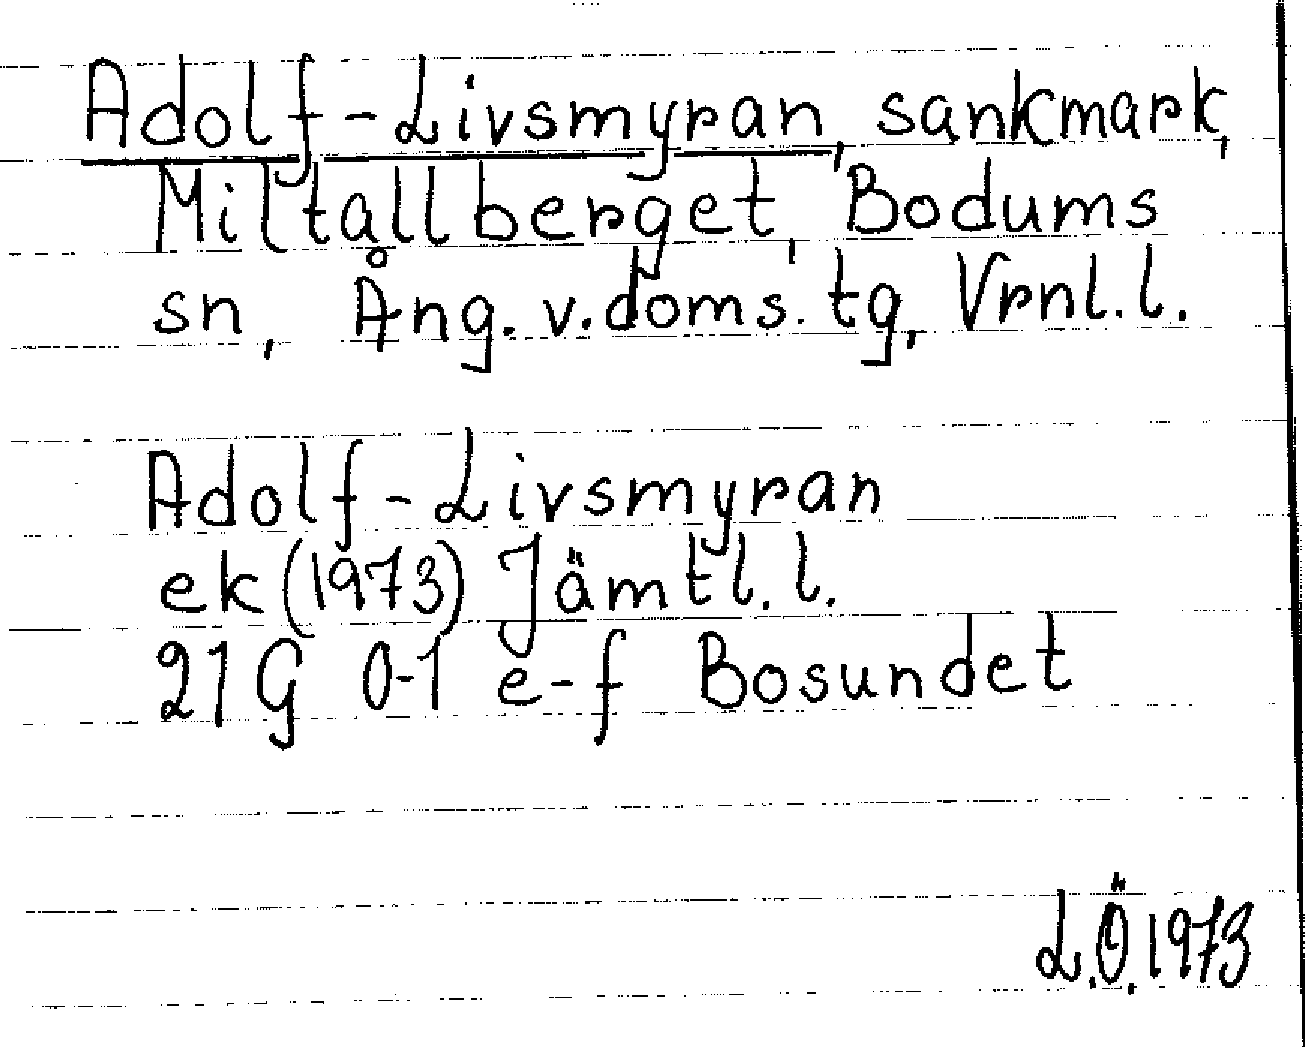 Adolf-Livsmyran, sankmark,
Miltallberget, Bodums
sn, Ång. v. doms. tg, Vrnl.l.
Adolf-Livsmyran
ek (1973) Jämtl.l.
21G 0-1 e-f Bosundet
L.Ö. 1973